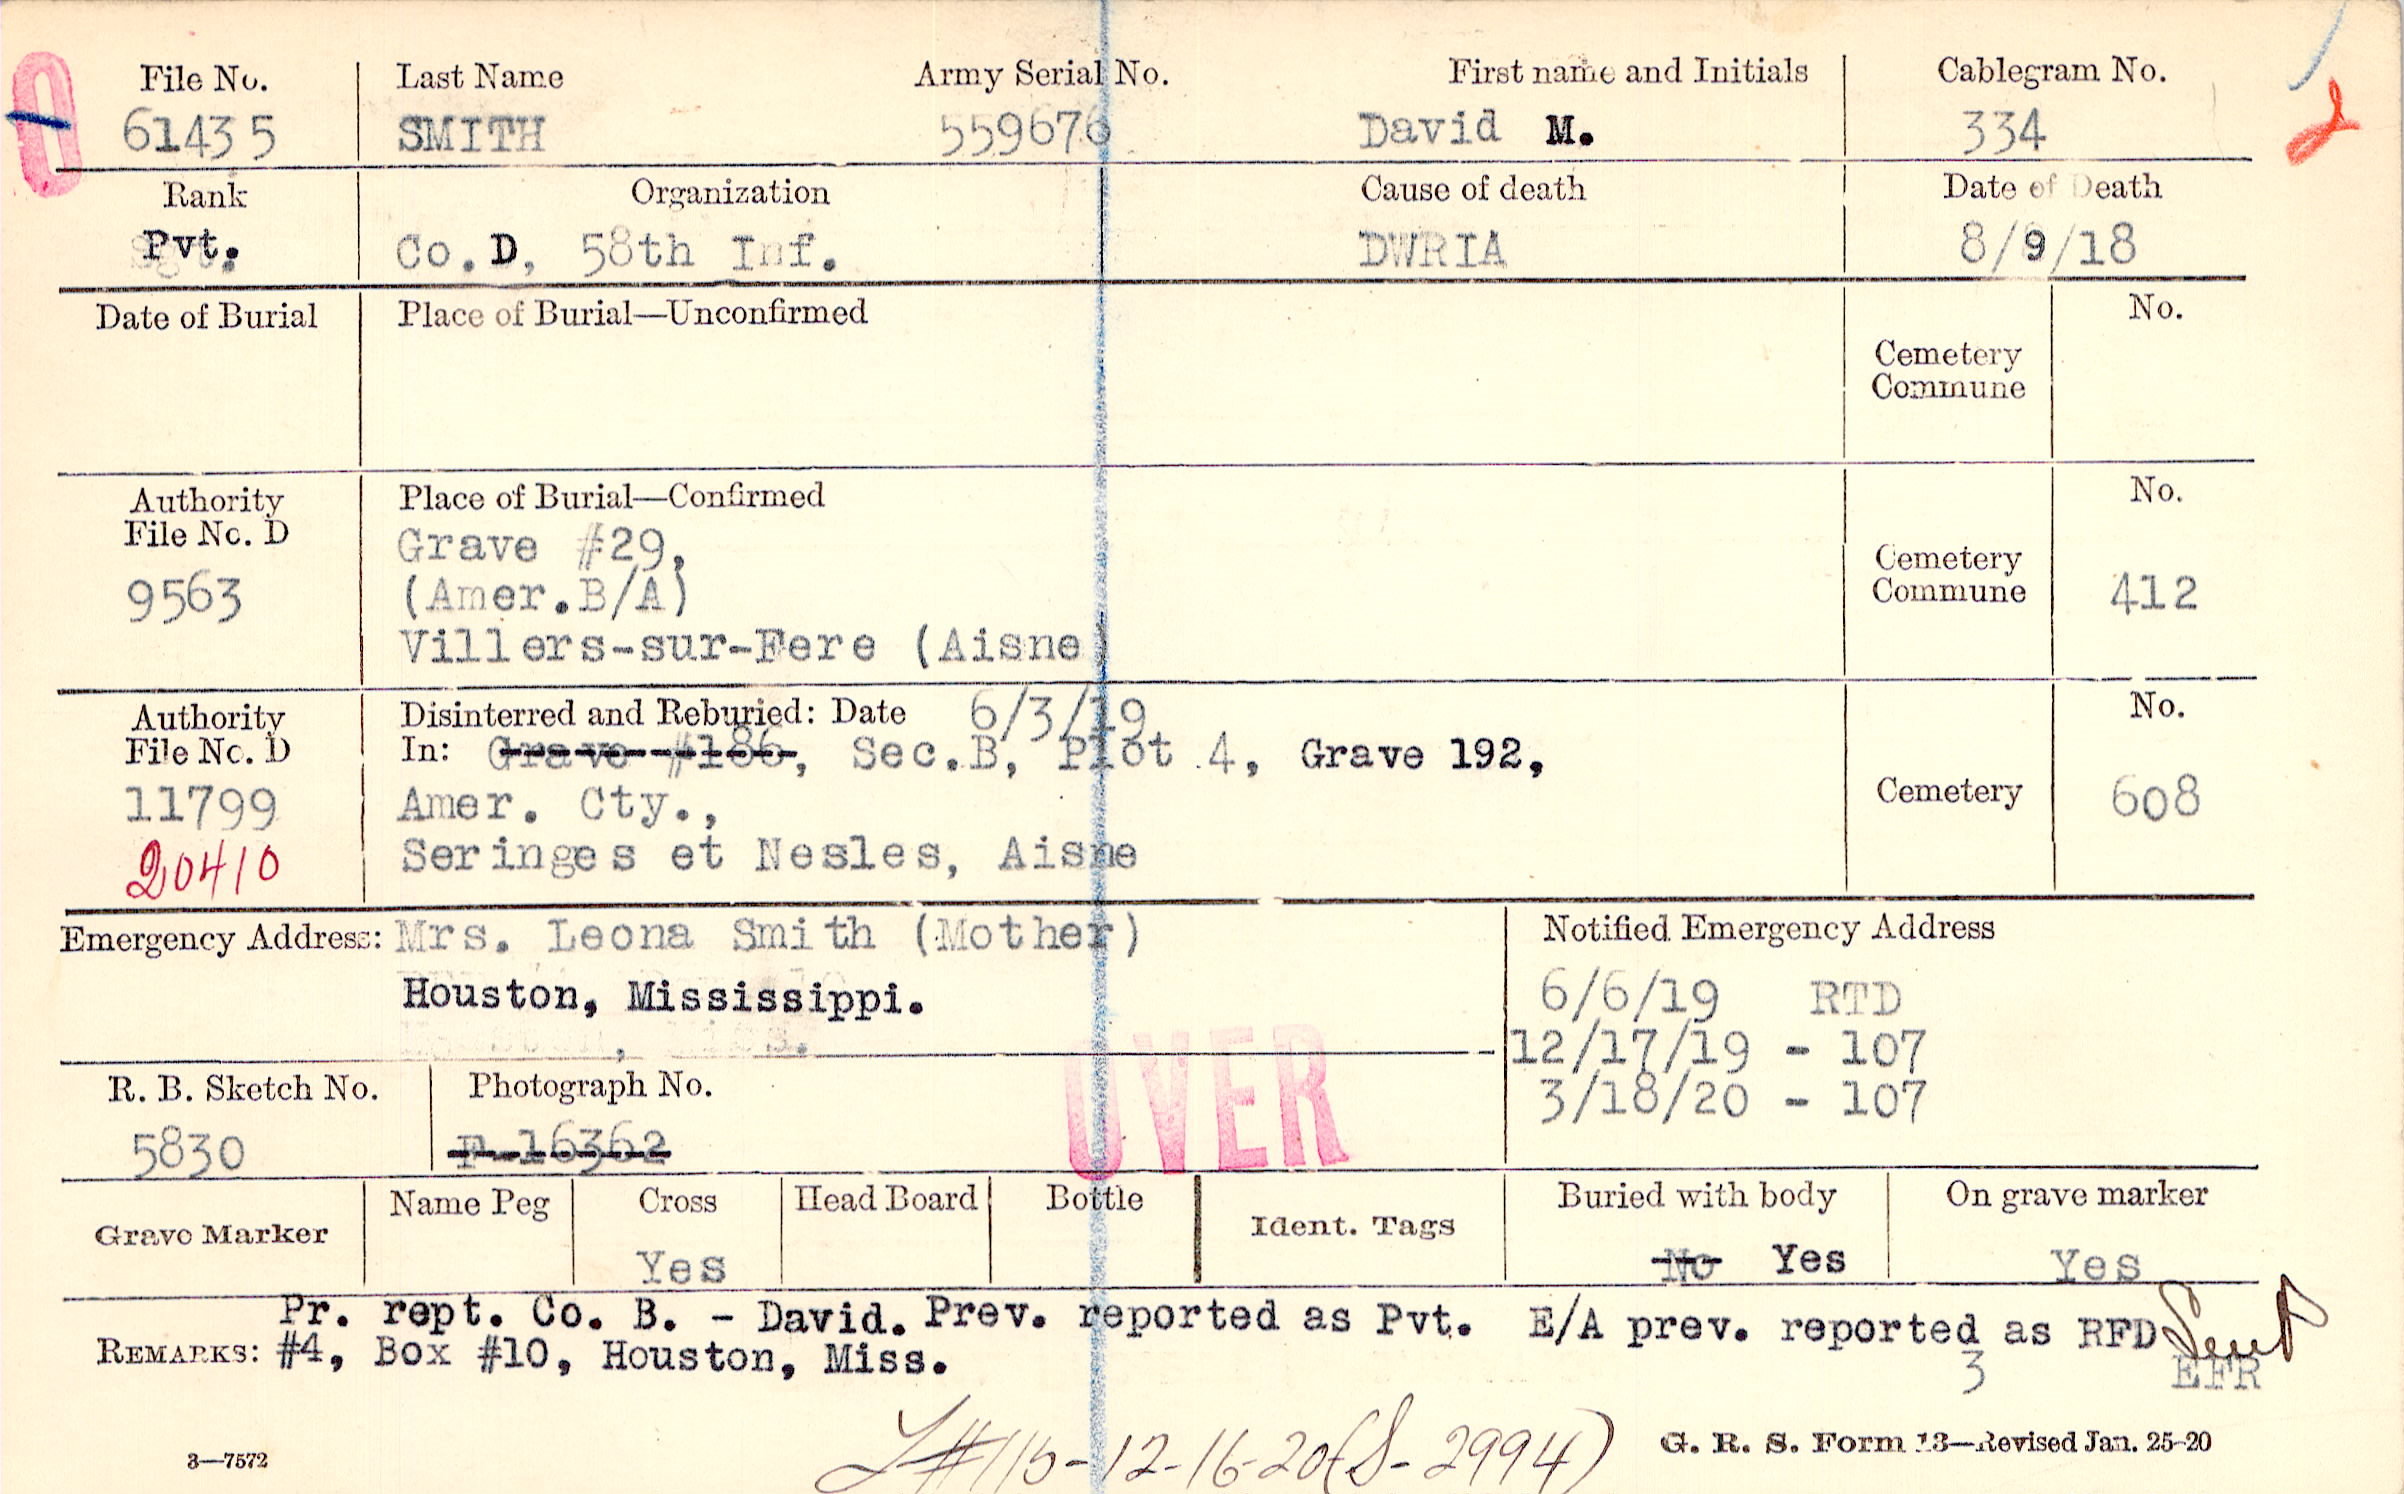 File No. Last Name Army Serial No. First name and Initials Cablegram No.
61435 SMITH 559676 David M. 334
Rank Organization Cause of death Date of Death
Pvt. Co.D, 58th Inf. DWRIA 8/9/18
Date of Burial Place of Burial—Unconfirmed No.
Cemetery
Commune
Authority Place of Burial—Confirmed No.
File No. D
Grave #29,
9563 (Amer.B/A) Cemetery
Commune 412
Villers-sur-Fere (Aisne)
Authority Disinterred and Reburied: Date 6/3/19 No.
File No. D In: Grave #186, Sec.B, Plot 4, Grave 192,
11799 Amer. Cty., Cemetery 608
20410 Seringes et Nesles, Aisne
Emergency Address: Mrs. Leona Smith (Mother) Notified Emergency Address
Houston, Mississippi. 6/6/19 RTD
12/17/19 - 107
3/18/20 - 107
OVER
R. B. Sketch No. Photograph No.
5830 F-16362
Grave Marker Name Peg Cross Head Board Bottle Ident. Tags Buried with body On grave marker
Yes No Yes Yes
Pr. rept. Co. B. - David. Prev. reported as Pvt. E/A prev. reported as RFD
REMARKS: #4, Box #10, Houston, Miss. 3 EFR
#115-12-16-20(S-2994)
3—7572 G. R. S. Form 13—Revised Jan. 25-20